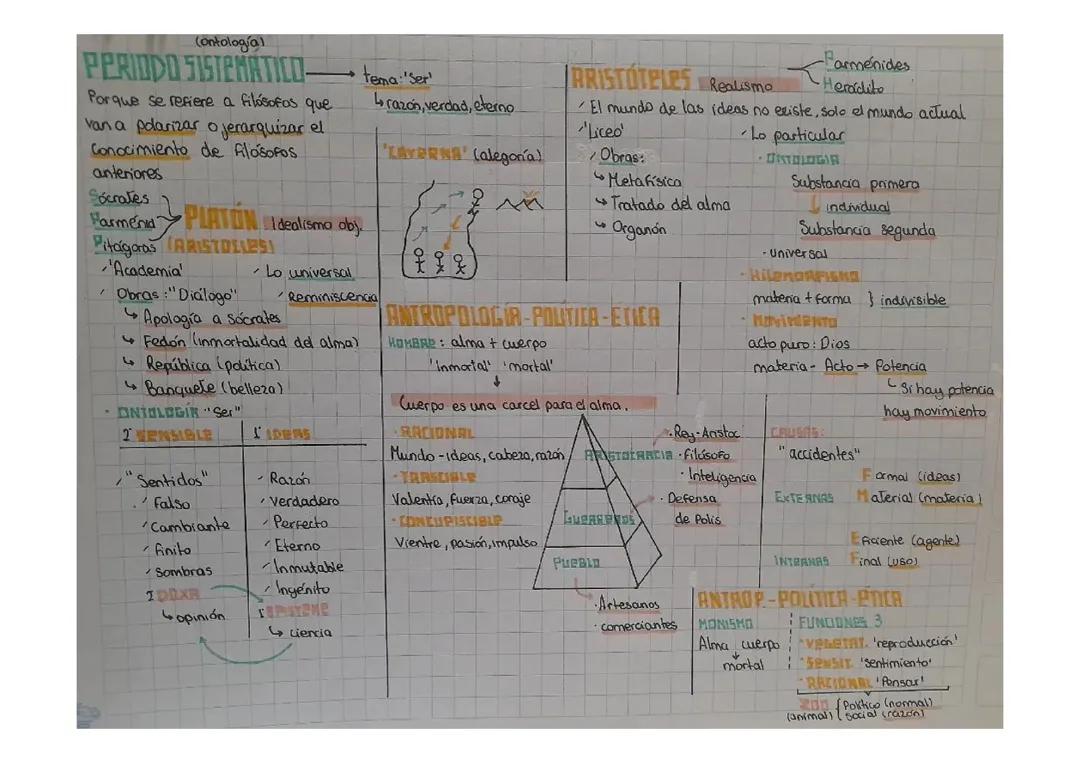 (ontología)
PERIODO SISTEMÁTICO → tema: 'Ser'
↳ razón, verdad, eterno
Porque se refiere a filósofos que
van a polarizar o jerarquizar el
conocimiento de filósofos
anteriores
Sócrates
Parménid
Pitágoras
PLATÓN Idealismo obj.
(ARISTOCLES)
'Academia'
Obras: "Diálogo"
↳ Apología a Sócrates
↳ Fedón (inmortalidad del alma)
↳ República (política)
↳ Banquete (belleza)
Lo universal
Reminiscencia
· ONTOLOGÍA "Ser"
2º SENSIBLE
"Sentidos"
Falso
Cambiante
Finito
Sombras
DOXA
↳ opinión
1º IDEAS
Razón
Verdadero
Perfecto
Eterno
Inmutable
Ingénito
EPISTEME
↳ ciencia
'CAVERNA' (alegoría)
ANTROPOLOGÍA - POLÍTICA - ÉTICA
HOMBRE: alma + cuerpo
'inmortal' 'mortal'
Cuerpo es una carcel para el alma.
· RACIONAL
Mundo - ideas, cabeza, razón
· IRASCIBLE
Valentía, fuerza, coraje
· CONCUPISCIBLE
Vientre, pasión, impulso
ARISTOCRACIA
Guerreros
Pueblo
· Rey - Aristoc
· Filósofo
· Inteligencia
· Defensa
de Polis
· Artesanos
· comerciantes
ARISTÓTELES Realismo
Parménides
Heráclito
El mundo de las ideas no existe, solo el mundo actual
'Liceo'
Obras:
↳ Metafísica
↳ Tratado del alma
↳ Organón
Lo particular
· ONTOLOGIA
Substancia primera
↓ individual
Substancia segunda
· universal
· Hilemorfismo
materia + forma } indivisible
· Movimiento
acto puro: Dios
materia - Acto → Potencia
↳ Si hay potencia
hay movimiento
CAUSAS:
"accidentes"
Formal (ideas)
EXTERNAS Material (materia)
Eficiente (agente)
INTERNAS Final (uso)
ANTROP. - POLÍTICA - ÉTICA
MONISMO
Alma cuerpo
↓
mortal
FUNCIONES 3
· VEGETAT. 'reproducción'
· SENSIT. 'sentimiento'
· RACIONAL 'Pensar'
ZOO { Político (normal)
(animal) social (razón)